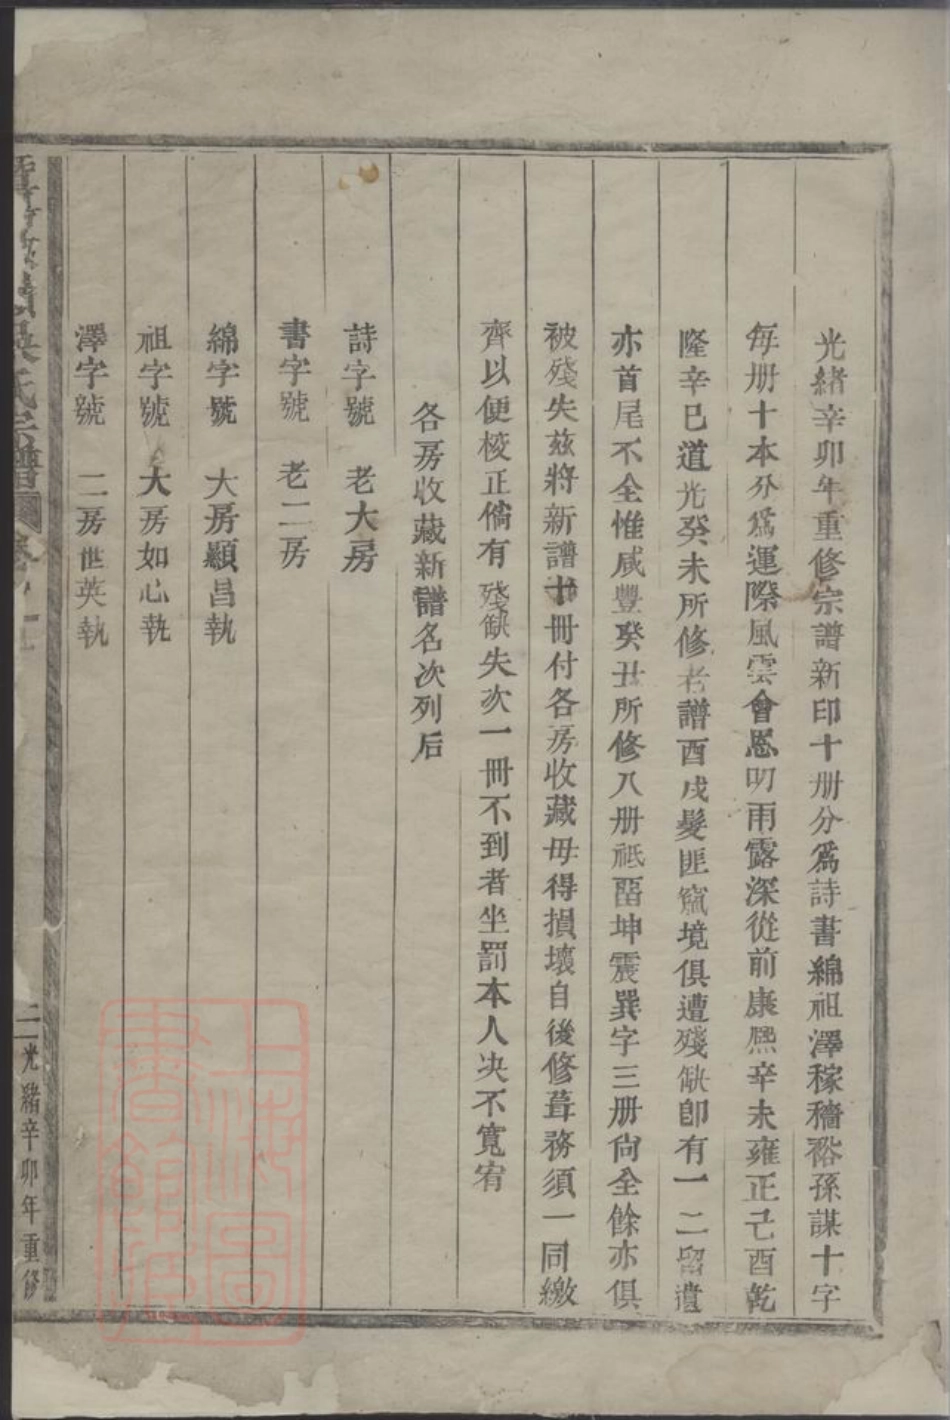 光緒辛卯年重修宗譜新印十册分爲詩書綿祖澤稼穡裕孫謀十字
每册十本分爲運際風雲會恩叨雨露深從前康熙辛未雍正己酉乾
隆辛巳道光癸未所修老譜酉戌髮匪竄境俱遭殘缺卽有一二留遺
亦首尾不全惟咸豐癸丑所修八册祗畱坤震巽字三册尙全餘亦俱
被殘失兹將新譜十冊付各房收藏毋得損壞自後修葺務須一同繳
齊以便校正倘有殘缺失次一冊不到者坐罰本人決不寬宥
各房收藏新譜名次列后
詩字號 老大房
書字號 老二房
綿字號 大房顯昌執
祖字號 大房如心執
澤字號 二房世英執
吳氏宗譜
光緒辛卯年重修
上海圖書館藏